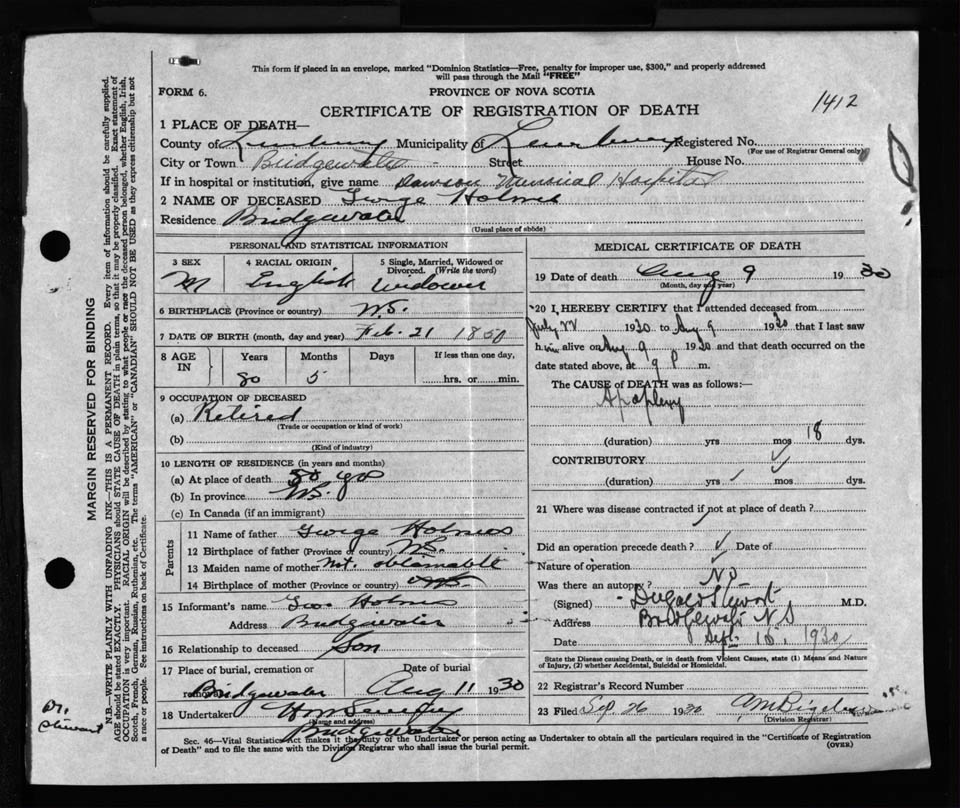 This form if placed in an envelope, marked "Dominion Statistics—Free, penalty for improper use, $300," and properly addressed
will pass through the Mail "FREE"
FORM 6.
PROVINCE OF NOVA SCOTIA
1412
CERTIFICATE OF REGISTRATION OF DEATH
1 PLACE OF DEATH—
County of Lunenburg Municipality of Lunenburg Registered No.
(For use of Registrar General only)
City or Town Bridgewater Street House No.
If in hospital or institution, give name Dawson Memorial Hospital
2 NAME OF DECEASED George Holmes
Residence Bridgewater
(Usual place of abode)
PERSONAL AND STATISTICAL INFORMATION
3 SEX 4 RACIAL ORIGIN 5 Single, Married, Widowed or
Divorced. (Write the word)
M English Widower
6 BIRTHPLACE (Province or country) N.S.
7 DATE OF BIRTH (month, day and year) Feb. 21 1850
8 AGE IN Years Months Days If less than one day,
80 5 hrs. or min.
9 OCCUPATION OF DECEASED
(a) Retired
(Trade or occupation or kind of work)
(b)
(Kind of industry)
10 LENGTH OF RESIDENCE (in years and months)
(a) At place of death 50 yrs
(b) In province N.S.
(c) In Canada (if an immigrant)
Parents
11 Name of father George Holmes
12 Birthplace of father (Province or country) N.S.
13 Maiden name of mother Not obtainable
14 Birthplace of mother (Province or country) N.S.
15 Informant's name Geo. Holmes
Address Bridgewater
16 Relationship to deceased Son
17 Place of burial, cremation or removal Date of burial
Bridgewater Aug 11 1930
18 Undertaker
(Name and address)
Bridgewater
MEDICAL CERTIFICATE OF DEATH
19 Date of death Aug 9 1930
(Month, day and year)
20 I, HEREBY CERTIFY that I attended deceased from
July 22 1930 to Aug 9 1930 that I last saw
him alive on Aug 9 1930 and that death occurred on the
date stated above, at 9 P m.
The CAUSE of DEATH was as follows:—
Apoplexy
(duration) yrs mos 18 dys.
CONTRIBUTORY
(duration) yrs mos dys.
21 Where was disease contracted if not at place of death?
Did an operation precede death? Date of
Nature of operation
Was there an autopsy? No
(Signed) Dugald Stewart M.D.
Address Bridgewater N.S
Date Sept. 16. 1930
State the Disease causing Death, or in death from Violent Causes, state (1) Means and Nature
of Injury, (2) whether Accidental, Suicidal or Homicidal.
22 Registrar's Record Number
23 Filed Sep. 26 1930
(Division Registrar)
Sec. 46—Vital Statistics Act makes it the duty of the Undertaker or person acting as Undertaker to obtain all the particulars required in the "Certificate of Registration
of Death" and to file the same with the Division Registrar who shall issue the burial permit.
(OVER)
MARGIN RESERVED FOR BINDING
N.B.—WRITE PLAINLY WITH UNFADING INK—THIS IS A PERMANENT RECORD. Every item of information should be carefully supplied.
AGE should be stated EXACTLY. PHYSICIANS should STATE CAUSE OF DEATH in plain terms, so that it may be properly classified. Exact statement of
OCCUPATION is very important. RACIAL ORIGIN will be described by stating to what people or race the deceased person belonged, whether English, Irish,
Scotch, French, German, Russian, Ruthenian, etc. The terms "AMERICAN" or "CANADIAN" SHOULD NOT BE USED as they express citizenship but not
a race or people. See instructions on back of Certificate.
Dr.
Stewart